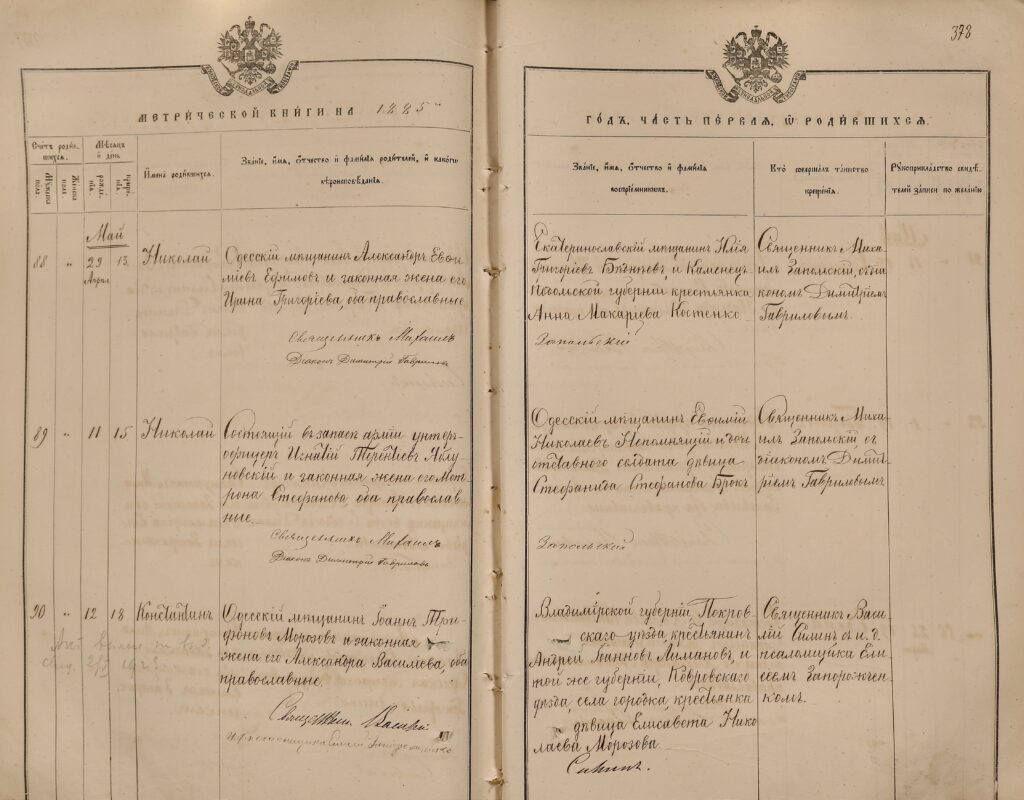 378
МЕТРИЧЕСКОЙ КНИГИ НА 1885
ГОДЪ, ЧАСТЬ ПЕРВАЯ, Ѡ РОДИВШИХСЯ.
Счетъ роди-
вшихся.
Мѣсяцъ
и день
Мужеска пола
Женска пола
рожде-
нія.
креще-
нія.
Имена родившихся.
Званіе, имя, отчество и фамилія родителей, и какого
вѣроисповѣданія.
Званіе, имя, отчество и фамилія
воспріемниковъ.
Кто совершалъ таинство
крещенія.
Рукоприкладство свидѣ-
телей записи по желанію
Май
88 „ 29 13 Николай
Апрѣ
Одесскій мѣщанинъ Александръ Евѳи-
міевъ Ефимовъ и законная жена его
Ирина Григоріева, оба православные
Священникъ Михаилъ
Діаконъ Димитрій Гавриловъ
Екатеринославскій мѣщанинъ Илія
Григоріевъ и Каменец-
Подольской губерніи крестьянка
Анна Макаріева Костенко
Запольскій
Священник Миха-
ил Запольскій, съ діа
кономъ Димитріем
Гавриловымъ.
89 „ 11 15 Николай
Состоящій въ запасѣ арміи унтеръ-
офицеръ Игнатій Терентіевъ Яблу-
новскій и законная жена его Мот-
рона Стефанова, оба православ-
ные.
Священникъ Михаилъ
Діаконъ Димитрій Гавриловъ
Одесскій мѣщанинъ Евѳимій
Николаевъ Непомнящій и дочь
отставного солдата дѣвица
Стефанида Стефанова Брокъ
Запольскій
Священник Миха-
ил Запольскій, съ
діакономъ Димит-
ріемъ Гавриловымъ
90 „ 12 18 Константинъ
Одесскій мѣщанинъ Іоаннъ Три-
фоновъ Морозовъ и законная
жена его Александра Василіева, оба
православные.
Священникъ Василій
Владимірской губерніи, Покров-
скаго уѣзда, крестьянинъ
Андрей Іоанновъ Лимановъ, и
той же губерніи, Ковровскаго
уѣзда, села городка, крестьянка
дѣвица Елисавета Нико
лаева Морозова.
Силинъ.
Священник Васи-
лій Силинъ съ и. д.
псаломщика Ели
сеемъ Запорожчен
комъ.